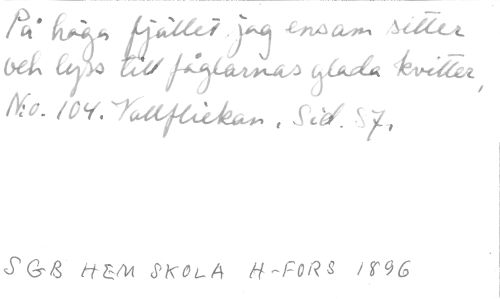 På höga fjället jag ensam sitter
och lyss till fåglarnas glada kvitter,
N:o. 104. Vallflickan. Sid. 57.
SGB HEM SKOLA H-FORS 1896